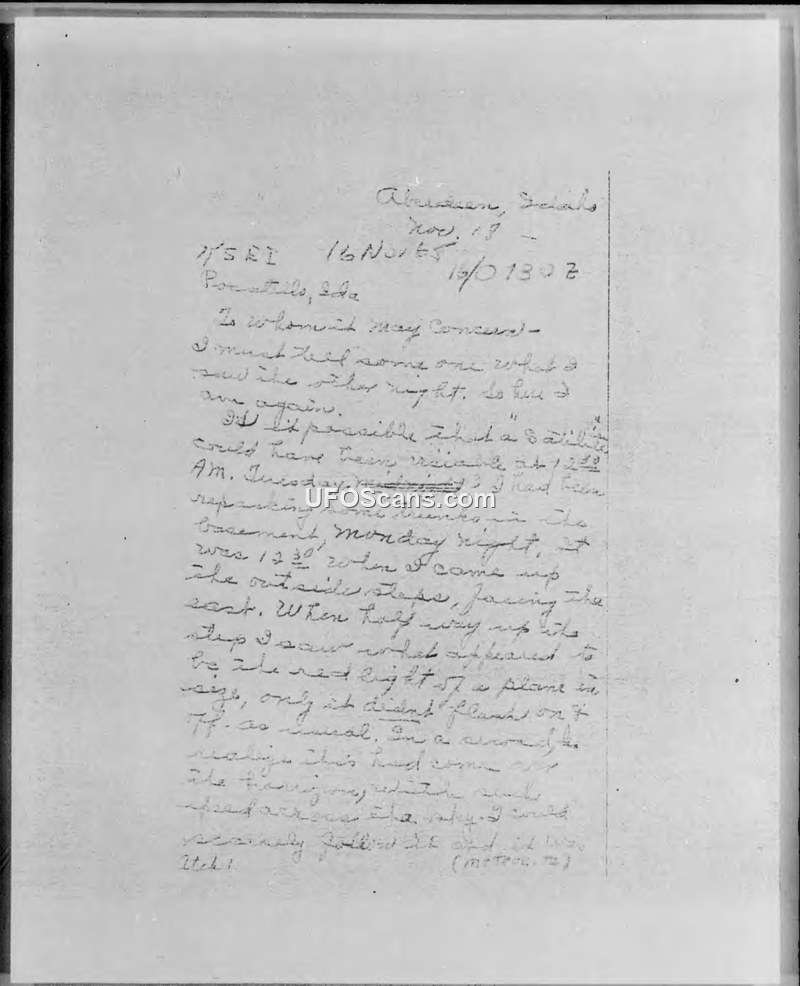 Aberdeen, Idaho
Nov. 18 —
KSEI 16 Nov 65
16/0730Z
Pocatello, Ida
To whom it May Concern —
I must tell some one what I
saw the other night. So here I
am again.
Is it possible that a "Satilite"
could have been visiable at 12 30
AM. Tuesday I had been
repacking some trunks in the
basement, Monday night, it
was 12 30 when I came up
the outside steps, facing the
east. When half way up the
step I saw what appeared to
be the red light of a plane in
size, only it didnt flash on &
off as usual. In a second to
realize this had come over
the horrizon, with such
speed across the sky. I could
scarcely follow it and it was
UFOScans.com